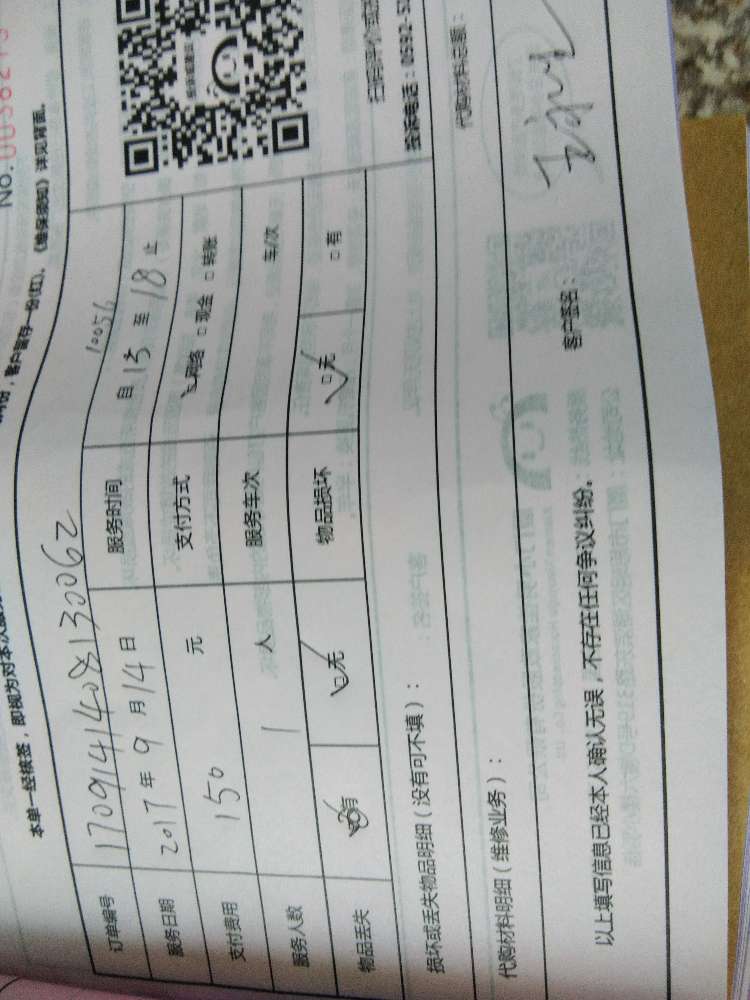 No. 0038215
本单一经核签，即视为对本次服
客户留存一份(红)。《维保须知》详见背面。
订单编号 1709141408130062
10056
服务日期 2017年9月14日 服务时间 自15至18止
支付费用 150 元 支付方式 网络 □现金 □转账
服务人数 1 人 服务车次 车/次
物品丢失 有 □无 物品损坏 □无 □有
损坏或丢失物品明细（没有可不填）：
投诉电话：0592-5
代购材料明细（维修业务）：
代购材料总额：
以上填写信息已经本人确认无误，不存在任何争议纠纷。
客户签名：